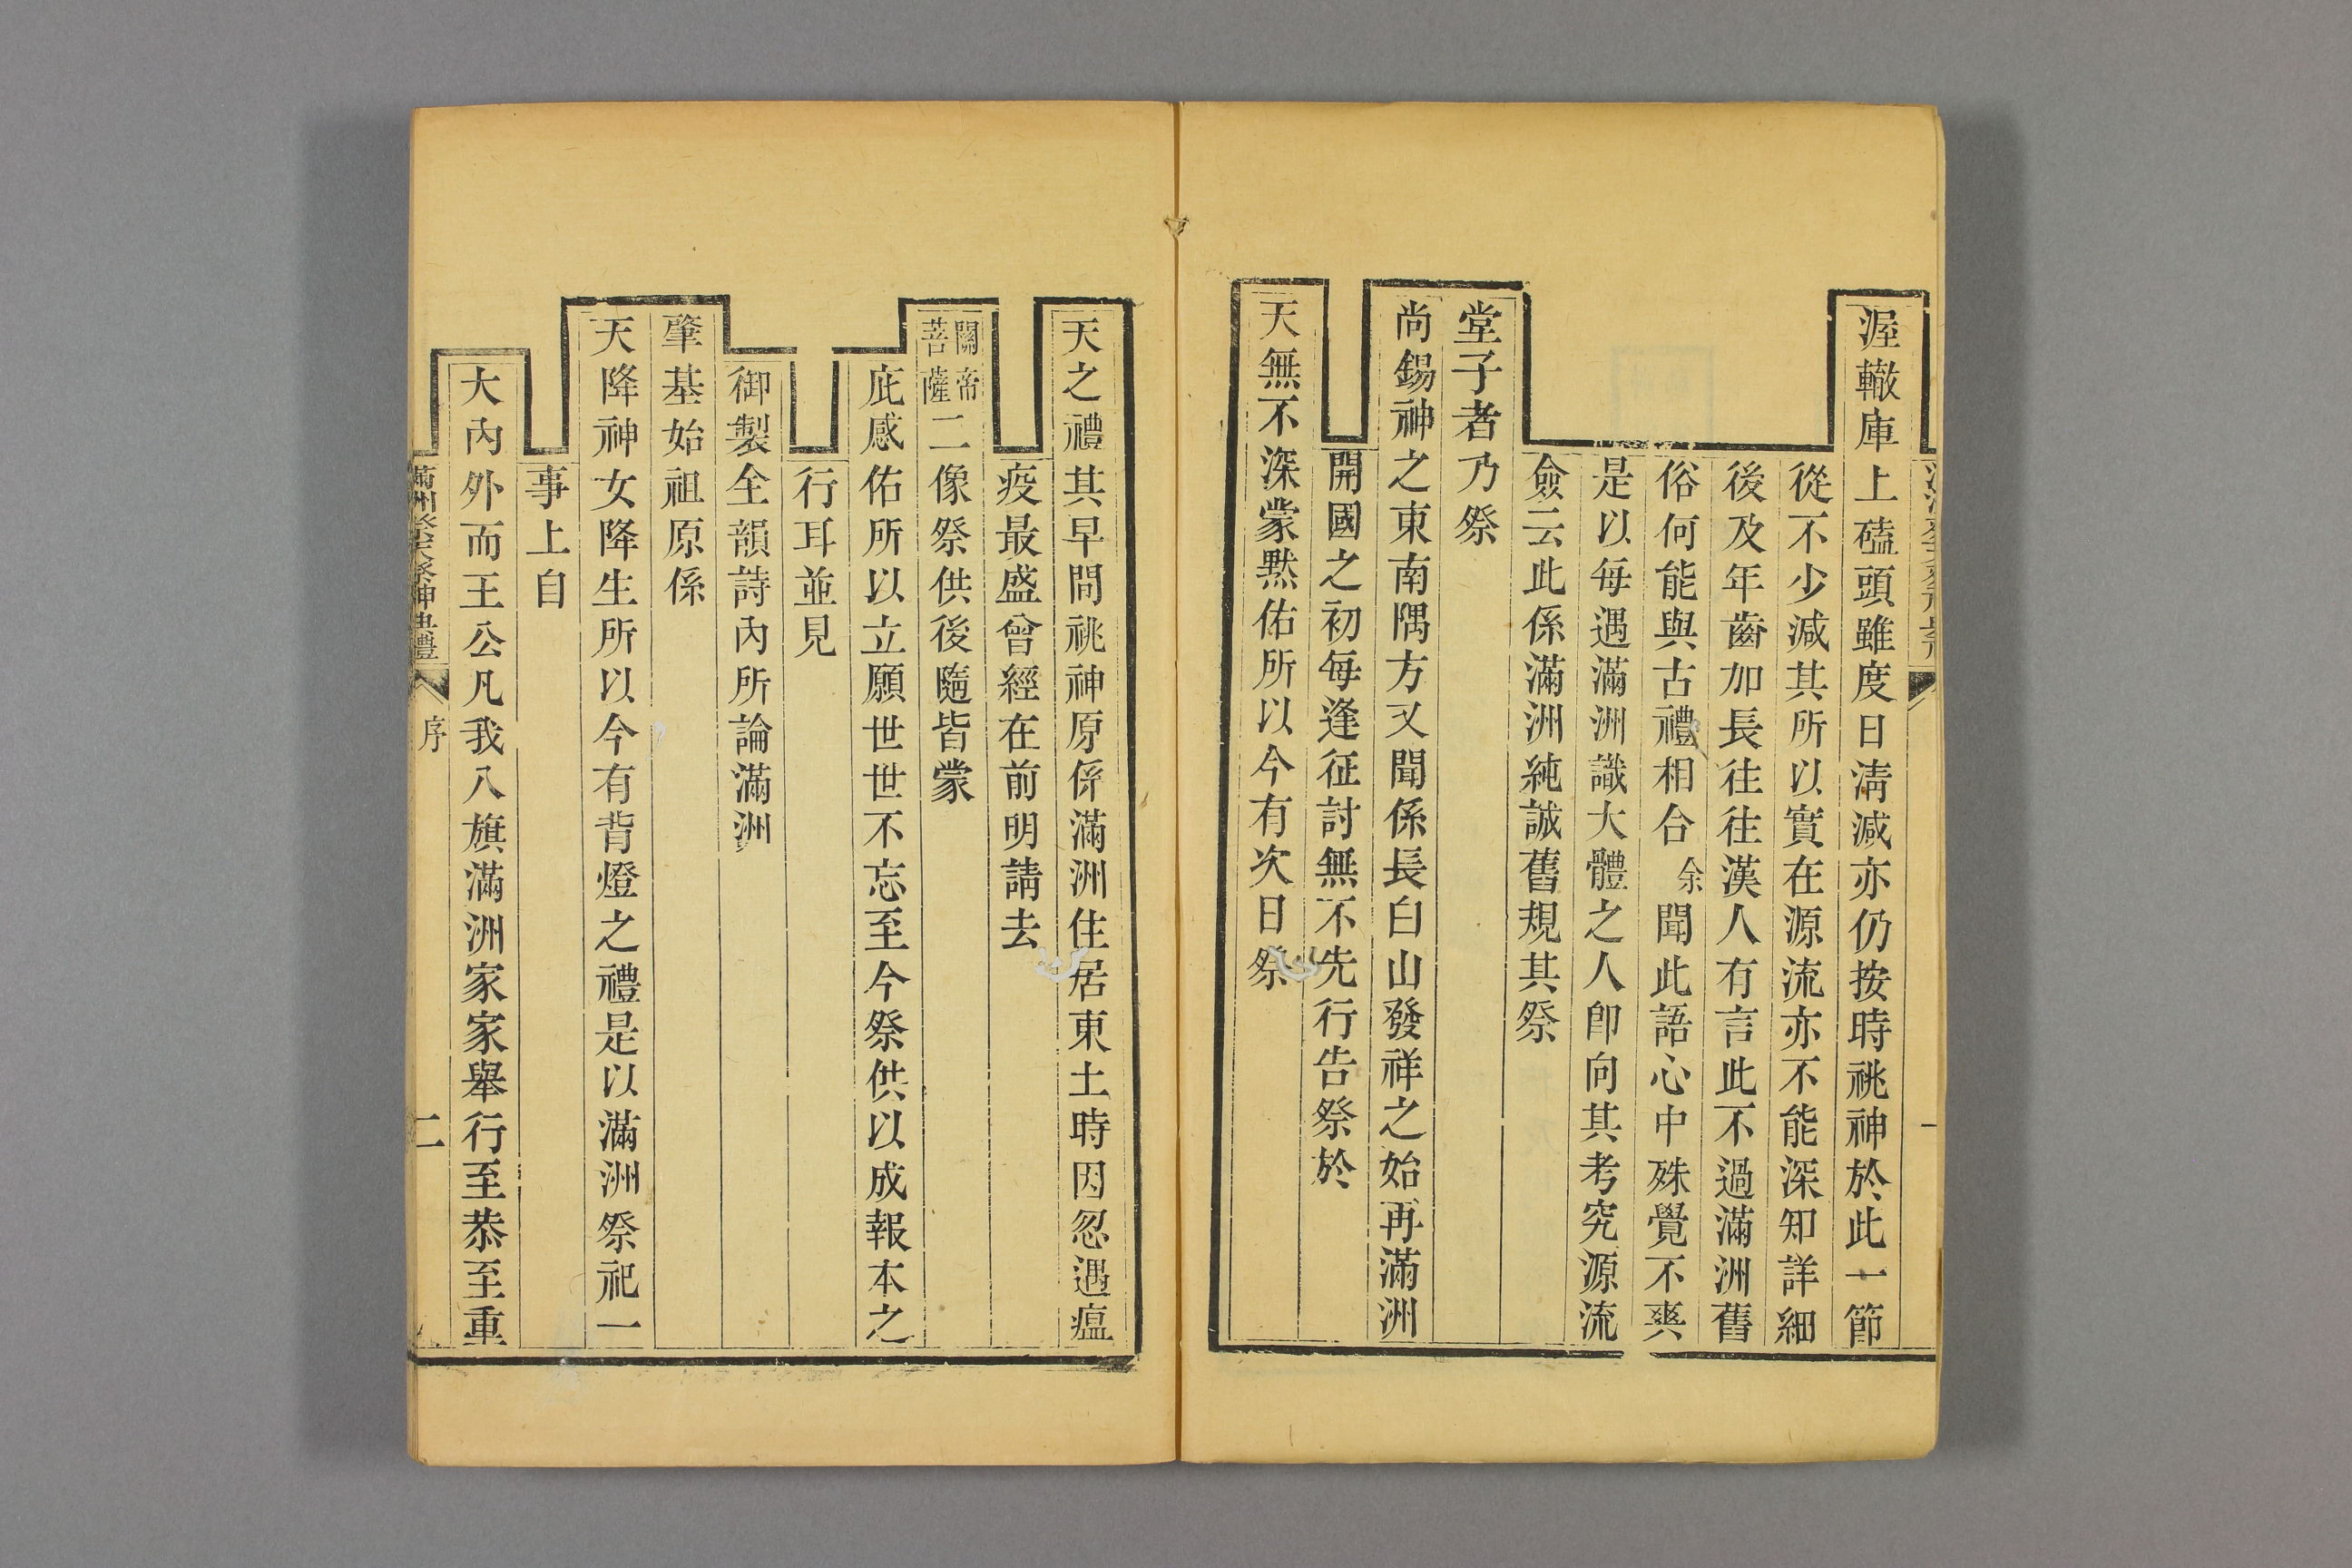 渥轍庫上磕頭雖度日清減亦仍按時祧神於此一節
從不少減其所以實在源流亦不能深知詳細
後及年齒加長往往漢人有言此不過滿洲舊
俗何能與古禮相合余聞此語心中殊覺不爽
是以每遇滿洲識大體之人卽向其考究源流
僉云此係滿洲純誠舊規其祭
堂子者乃祭
尚錫神之東南隅方又聞係長白山發祥之始再滿洲
開國之初每逢征討無不先行告祭於
天無不深蒙黙佑所以今有次日祭
一
天之禮其早間祧神原係滿洲住居東土時因忽遇瘟
疫最盛曾經在前明請去
關帝菩薩二像祭供後隨皆蒙
庇感佑所以立願世世不忘至今祭供以成報本之
行耳並見
御製全韻詩內所論滿洲
肇基始祖原係
天降神女降生所以今有背燈之禮是以滿洲祭祀一
事上自
大內外而王公凡我八旗滿洲家家舉行至恭至重
滿洲祭天祭神典禮 序 二